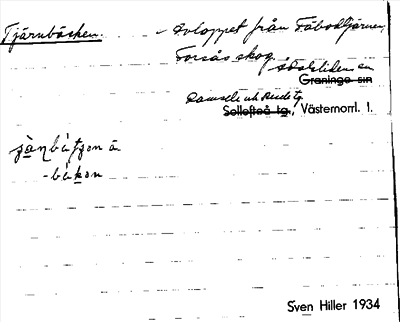 Tjärnbäcken. - Avloppet från Fäbodtjärnen,
Forsås skog.
Ådalsliden sn
Graninge sn
Ramsele och Resele tg
Sollefteå tg., Västernorrl. l.
-bäkən
Sven Hiller 1934